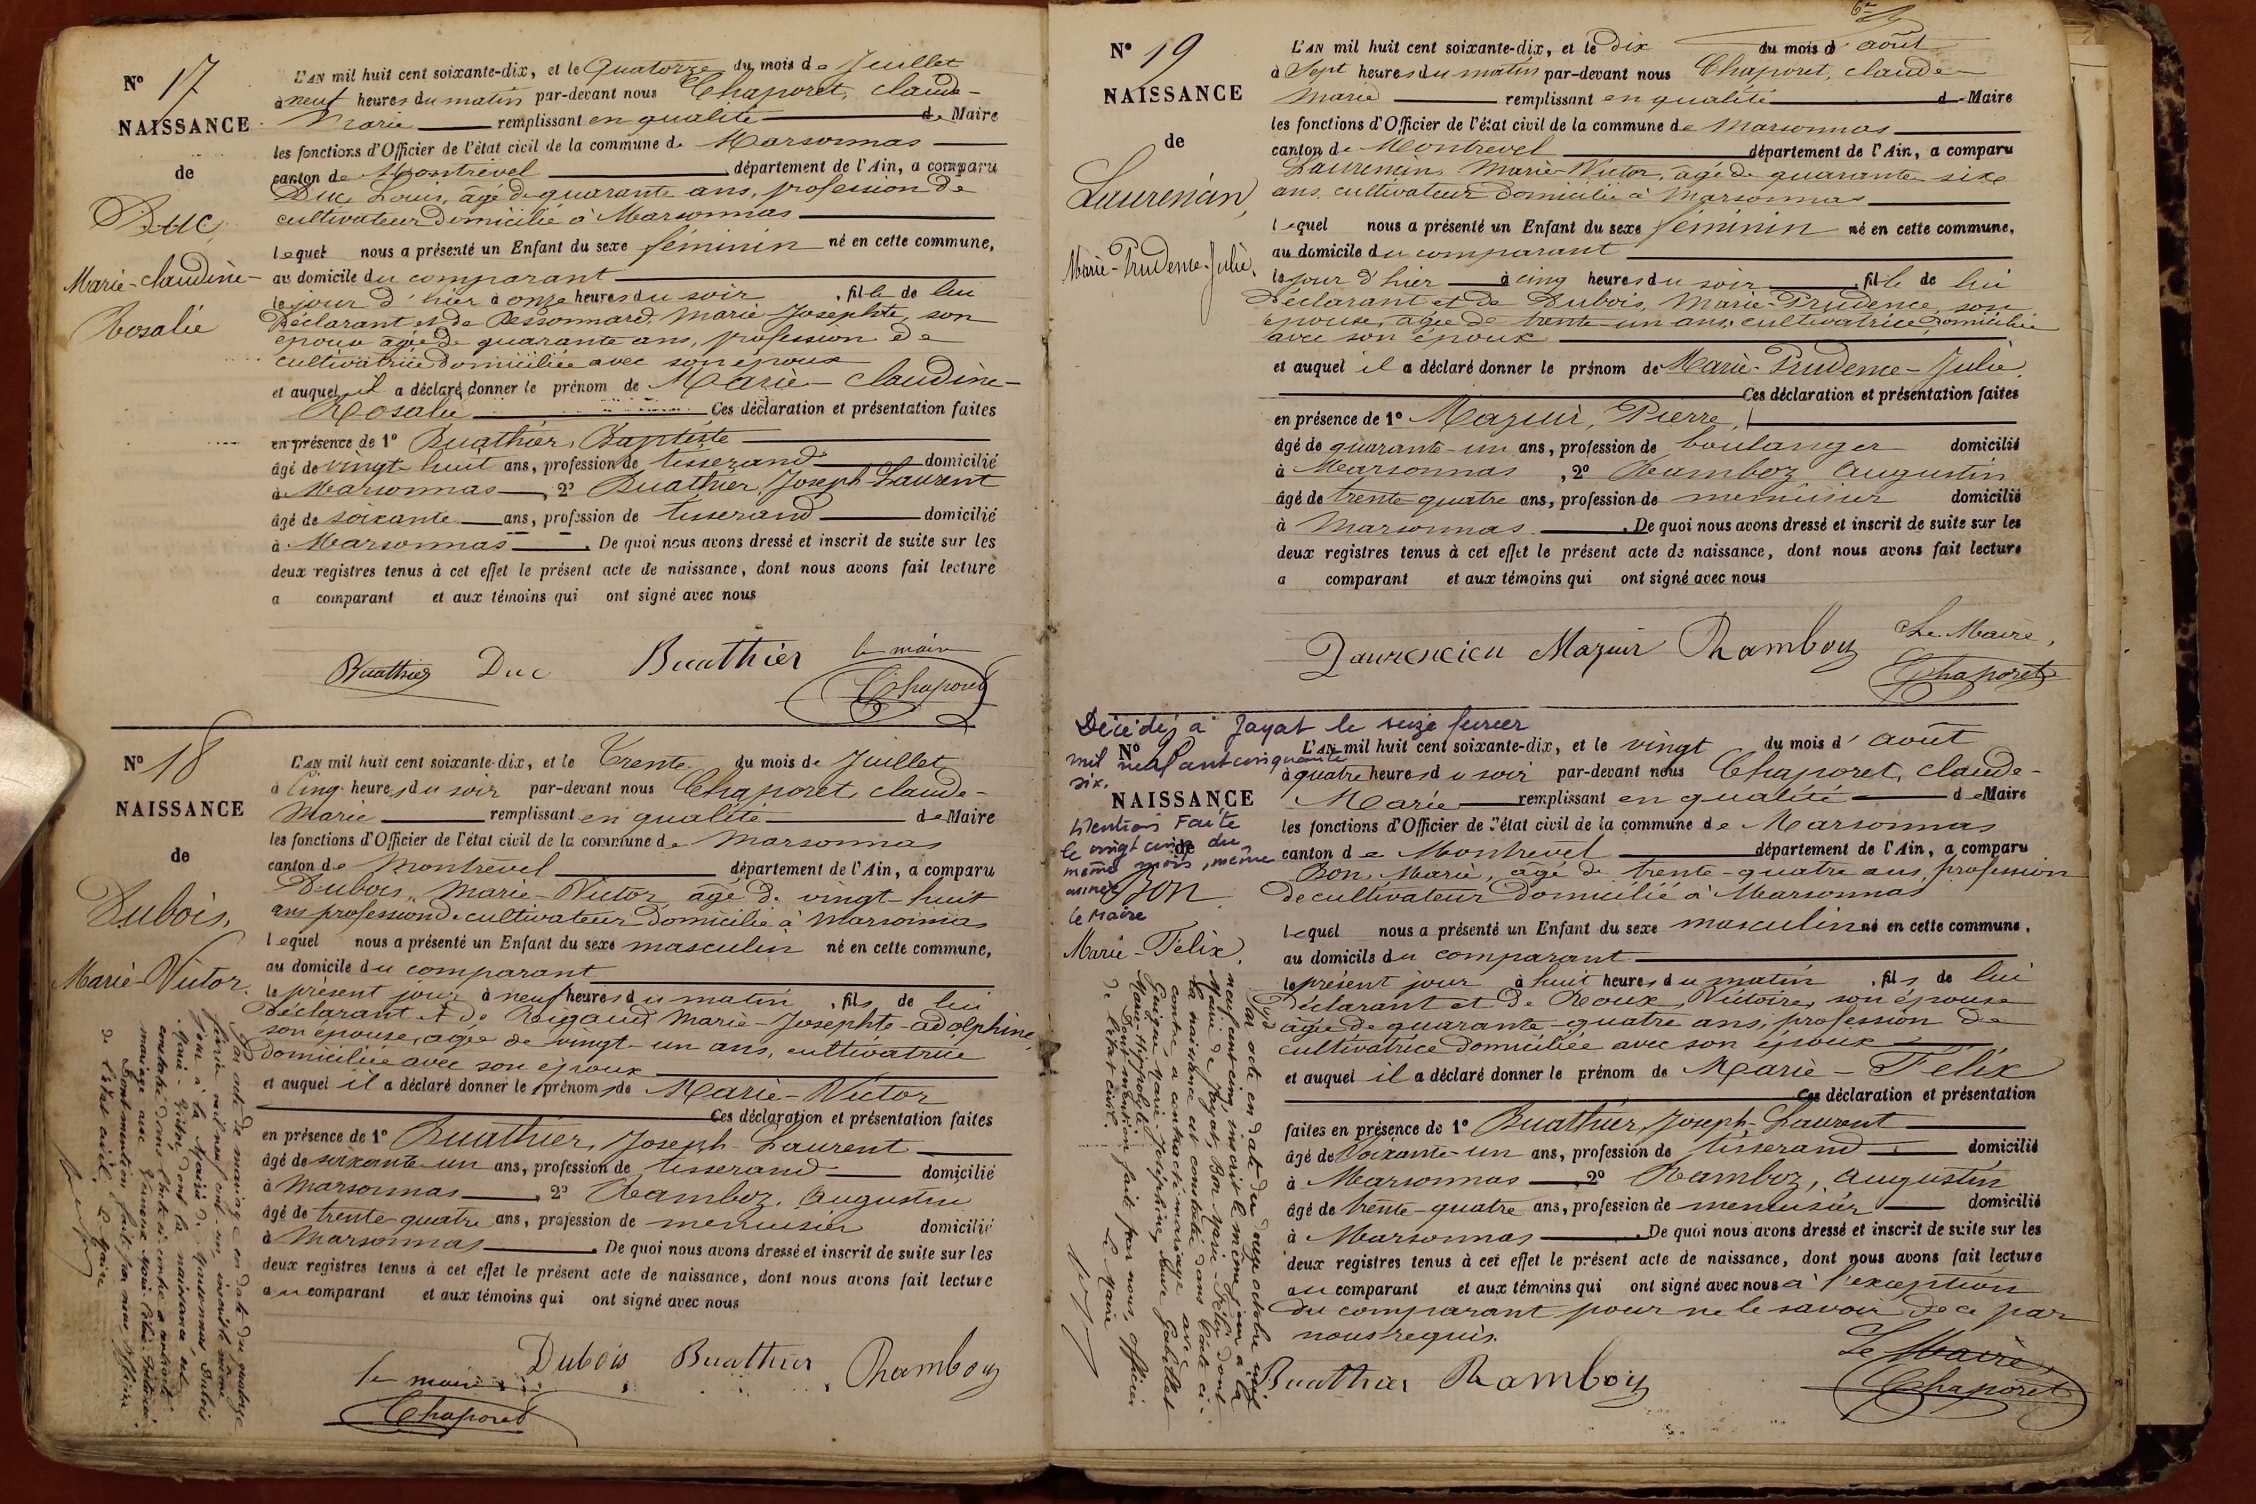 N° 17
NAISSANCE
de
Duc
Marie-Claudine-
Rosalie
L'AN mil huit cent soixante-dix, et le Quatorze du mois de Juillet
à neuf heures du matin par-devant nous Chaporet, Claude-
Marie remplissant en qualité de Maire
les fonctions d'Officier de l'état civil de la commune de Marsonnas
canton de Montrevel département de l'Ain, a comparu
Duc Louis, âgé de quarante ans, profession de
cultivateur domicilié à Marsonnas
lequel nous a présenté un Enfant du sexe féminin né en cette commune,
au domicile du comparant
le jour d'hier à onze heures du soir, fille de lui
Déclarant et de Marie Josephte, son
épouse âgée de quarante ans, profession de
cultivatrice domiciliée avec son époux
et auquel il a déclaré donner le prénom de Marie-Claudine-
Rosalie Ces déclaration et présentation faites
en présence de 1° Buathier, Baptiste
âgé de vingt-huit ans, profession de tisserand domicilié
à Marsonnas, 2° Buathier, Joseph-Laurent
âgé de soixante ans, profession de tisserand domicilié
à Marsonnas. De quoi nous avons dressé et inscrit de suite sur les
deux registres tenus à cet effet le présent acte de naissance, dont nous avons fait lecture
a comparant et aux témoins qui ont signé avec nous
Buathier Duc Buathier le maire
Chaporet
N° 18
NAISSANCE
de
Dubois,
Marie-Victor.
L'AN mil huit cent soixante-dix, et le Trente du mois de Juillet
à Cinq heures du soir par-devant nous Chaporet, Claude-
Marie remplissant en qualité de Maire
les fonctions d'Officier de l'état civil de la commune de Marsonnas
canton de Montrevel département de l'Ain, a comparu
Dubois, Marie-Victor, âgé de vingt-huit
ans profession de cultivateur domicilié à Marsonnas
lequel nous a présenté un Enfant du sexe masculin né en cette commune,
au domicile du comparant
le présent jour à neuf heures du matin, fils de lui
Déclarant et de Rigaud Marie-Josephte-adolphine,
son épouse, âgée de vingt-un ans, cultivatrice
domiciliée avec son époux
et auquel il a déclaré donner les prénoms de Marie-Victor
Ces déclaration et présentation faites
en présence de 1° Buathier, Joseph-Laurent
âgé de soixante-un ans, profession de tisserand domicilié
à Marsonnas, 2° Ramboz, Augustin
âgé de trente-quatre ans, profession de menuisier domicilié
à Marsonnas. De quoi nous avons dressé et inscrit de suite sur les
deux registres tenus à cet effet le présent acte de naissance, dont nous avons fait lecture
au comparant et aux témoins qui ont signé avec nous
Dubois Buathier Ramboz
le maire
Chaporet
Par acte de mariage en date du quatorze
février mil neuf cent-un inscrit le même
jour à la Mairie de Marsonnas Dubois
Marie-Victor, dont la naissance est
constatée dans l'acte ci-contre a contracté
mariage avec
Dont mention faite par nous Officier
de l'état civil Le Maire
N° 19
NAISSANCE
de
Laurencin,
Marie-Prudence-Julie.
L'AN mil huit cent soixante-dix, et le dix du mois d'août
à Sept heures du matin par-devant nous Chaporet, Claude-
Marie remplissant en qualité de Maire
les fonctions d'Officier de l'état civil de la commune de Marsonnas
canton de Montrevel département de l'Ain, a comparu
Laurencin, Marie-Victor, âgé de quarante six
ans cultivateur domicilié à Marsonnas
lequel nous a présenté un Enfant du sexe féminin né en cette commune,
au domicile du comparant
le jour d'hier à cinq heures du soir, fille de lui
Déclarant et de Dubois, Marie-Prudence, son
épouse, âgée de trente-un ans, cultivatrice domiciliée
avec son époux
et auquel il a déclaré donner le prénom de Marie-Prudence-Julie
Ces déclaration et présentation faites
en présence de 1° Mazuir, Pierre,
âgé de quarante-un ans, profession de boulanger domicilié
à Marsonnas, 2° Ramboz Augustin
âgé de trente-quatre ans, profession de menuisier domicilié
à Marsonnas. De quoi nous avons dressé et inscrit de suite sur les
deux registres tenus à cet effet le présent acte de naissance, dont nous avons fait lecture
a comparant et aux témoins qui ont signé avec nous
Laurencin Mazuir Ramboz Le Maire,
Chaporet
Décédé à Jayat le seize fevrier
mil neuf cent cinquante
six.
Mention Faite
le vingt cinq du
même mois, même
année
le Maire
N°
NAISSANCE
de
Bon
Marie-Félix.
L'AN mil huit cent soixante-dix, et le vingt du mois d'août
à quatre heures du soir par-devant nous Chaporet, Claude-
Marie remplissant en qualité de Maire
les fonctions d'Officier de l'état civil de la commune de Marsonnas
canton de Montrevel département de l'Ain, a comparu
Bon Marie, âgé de trente-quatre ans, profession
de cultivateur domicilié à Marsonnas
lequel nous a présenté un Enfant du sexe masculin né en cette commune,
au domicile du comparant
le présent jour à huit heures du matin, fils de lui
Déclarant et de Roux, Victoire, son épouse
âgée de quarante-quatre ans, profession de
cultivatrice domiciliée avec son époux
et auquel il a déclaré donner le prénom de Marie-Félix
Ces déclaration et présentation
faites en présence de 1° Buathier, Joseph-Laurent
âgé de Soixante-un ans, profession de tisserand domicilié
à Marsonnas, 2° Ramboz, Augustin
âgé de trente-quatre ans, profession de menuisier domicilié
à Marsonnas. De quoi nous avons dressé et inscrit de suite sur les
deux registres tenus à cet effet le présent acte de naissance, dont nous avons fait lecture
au comparant et aux témoins qui ont signé avec nous à l'exception
du comparant pour ne le savoir de ce par
nous requis.
Buathier Ramboz
Le Maire,
Chaporet
Par acte en date du douze octobre mil
neuf cent cinq, inscrit le même jour à la
Mairie de Jayat, Bon Marie-Félix dont
la naissance est constatée dans l'acte ci-
contre, a contracté mariage avec
Guigue, Marie-Joséphine,
Marie-Hyppolyte.
Dont mention faite par nous, officier
de l'état civil. Le Maire